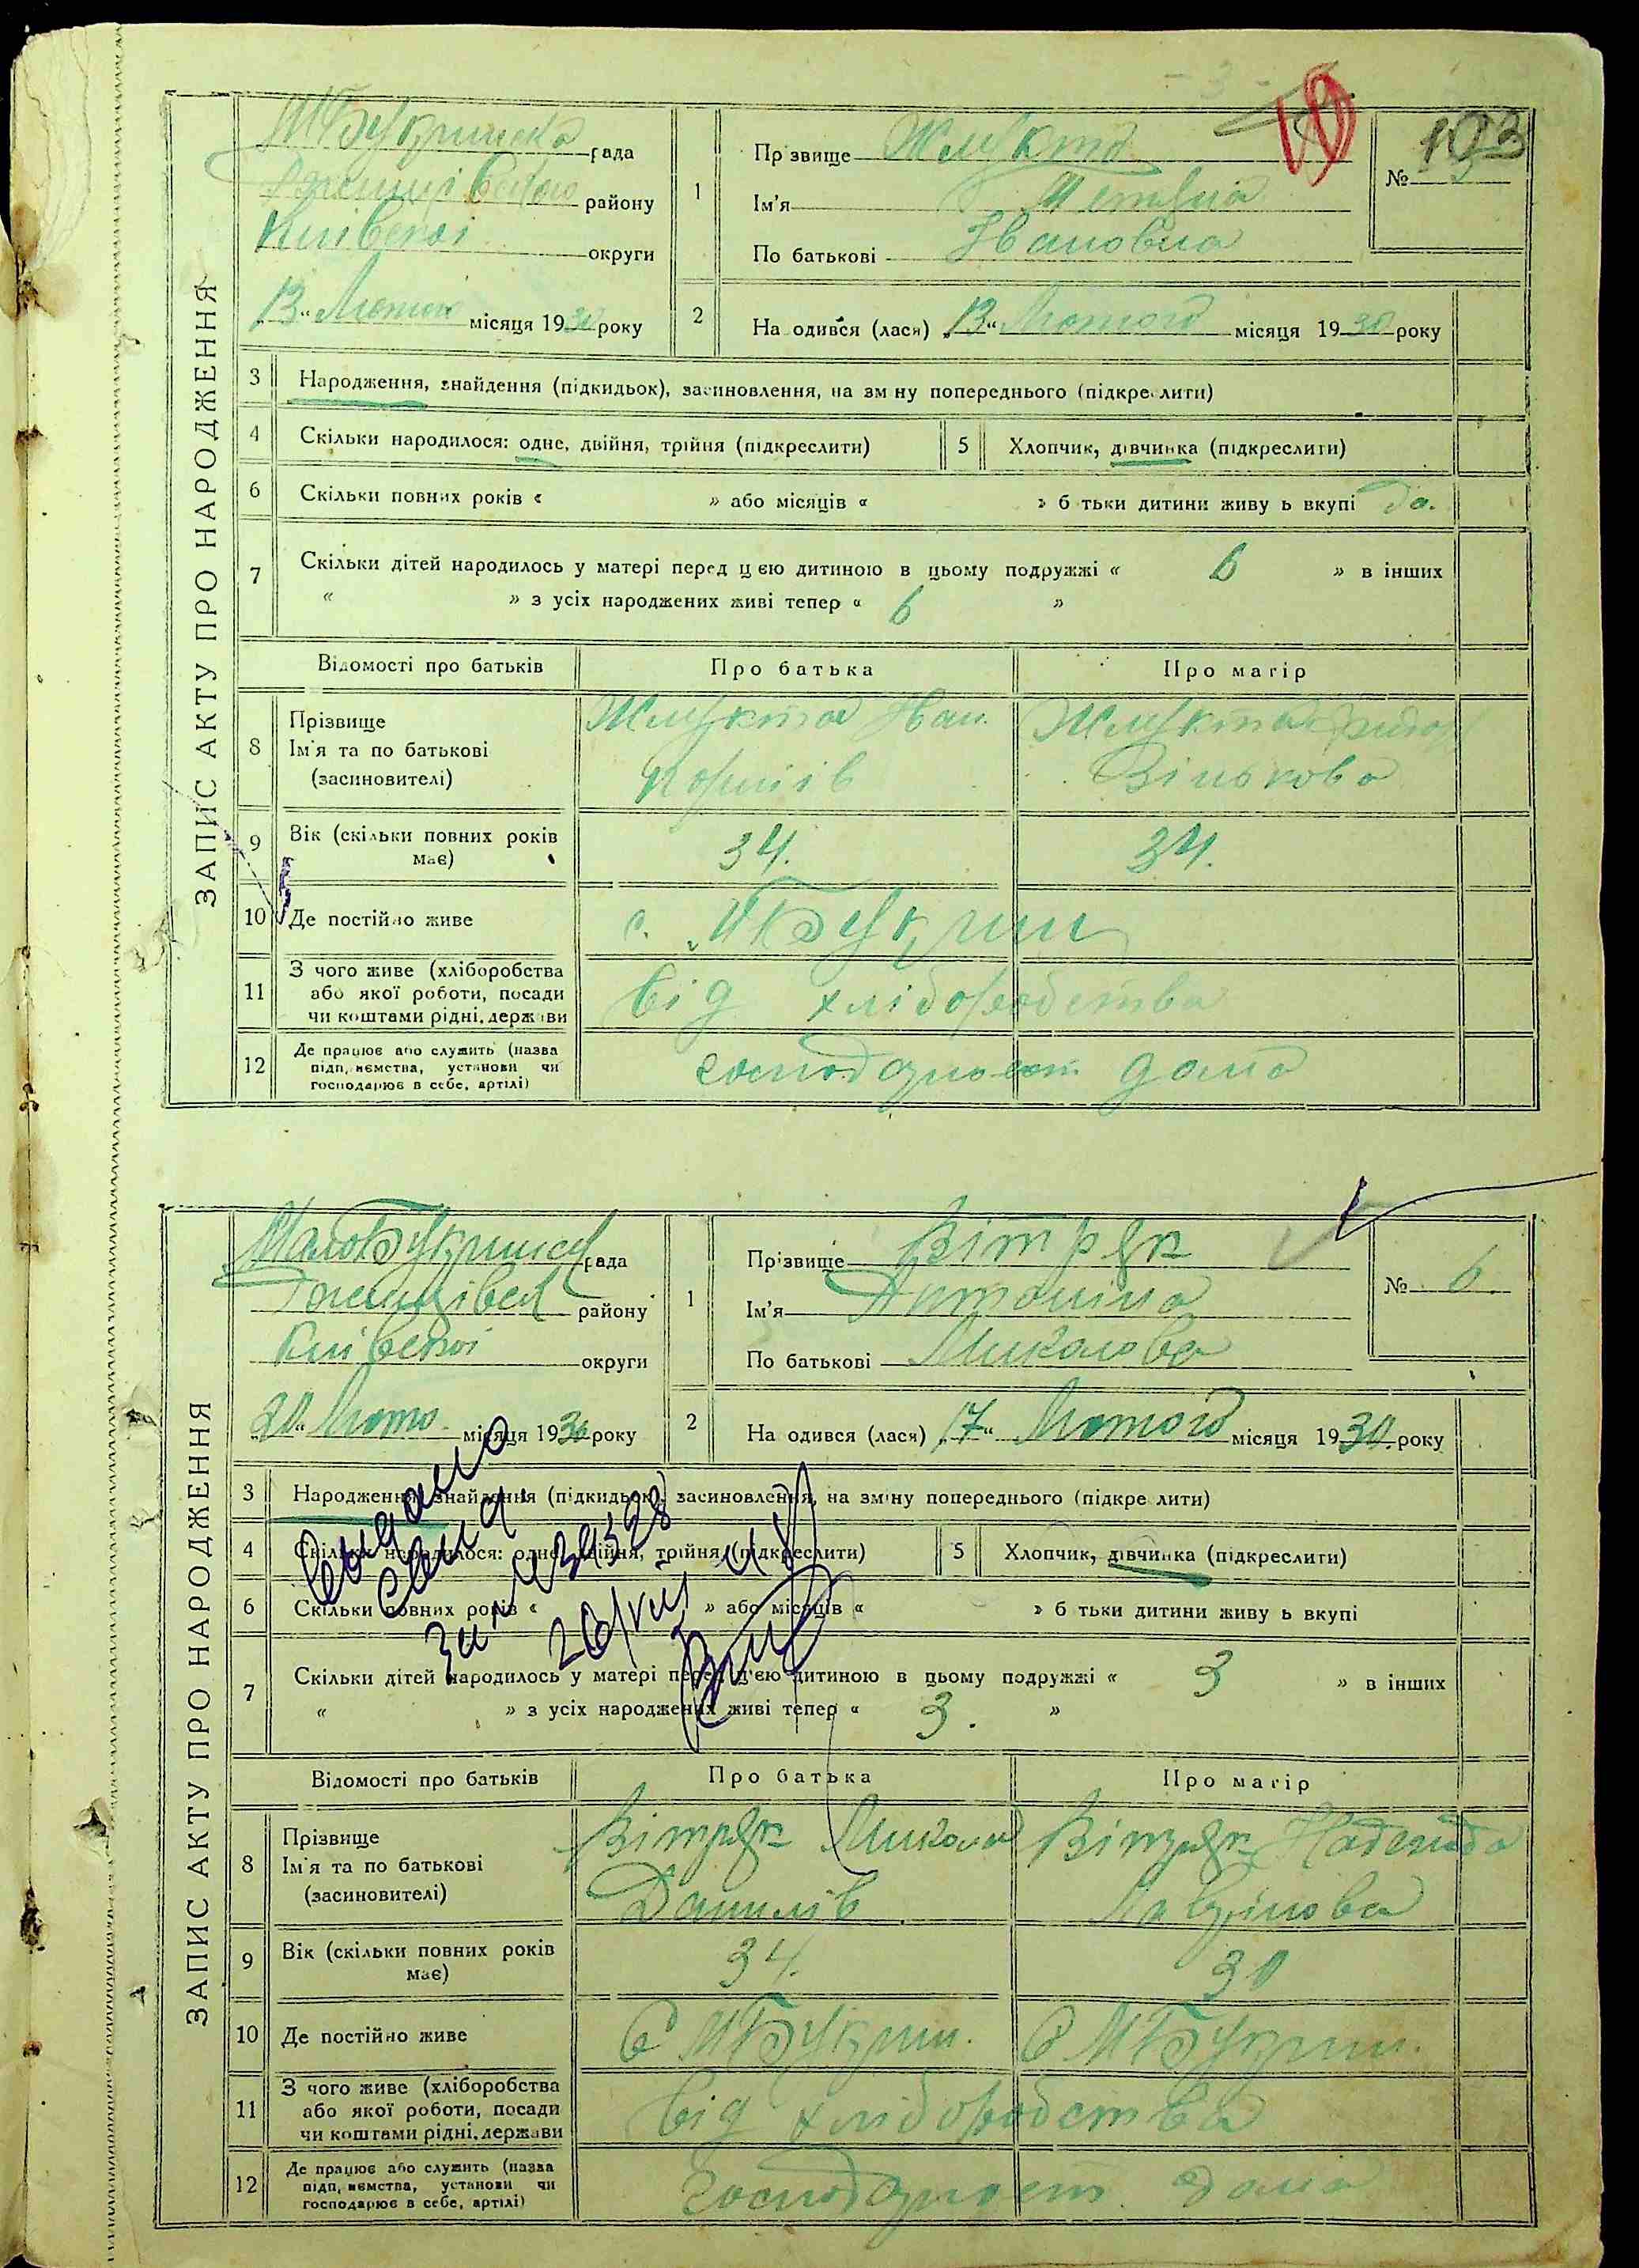 10
103
ЗАПИС АКТУ ПРО НАРОДЖЕННЯ
МБукринска рада
району
Київської округи
„13“ Лютого місяця 1930 року
1
Прізвище Жлукта
Ім'я
По батькові Івановна
№
2
На одився (лася) „13“ Лютого місяця 1930 року
3 Народження, знайдення (підкидьок), засиновлення, на зм ну попереднього (підкреслити)
4 Скільки народилося: одне, двійня, трійня (підкреслити)
5 Хлопчик, дівчинка (підкреслити)
6 Скільки повних років « » або місяців « » б тьки дитини живу ь вкупі да.
7 Скільки дітей народилось у матері перед ц єю дитиною в цьому подружжі « 6 » в інших
« » з усіх народжених живі тепер « 6 »
Відомості про батьків Про батька Про матір
8 Прізвище
Ім'я та по батькові
(засиновителі)
Жлукта Іван
Жлукта
9 Вік (скільки повних років має) 34. 34.
10 Де постійно живе с. МБукрин
11 З чого живе (хліборобства
або якої роботи, посади
чи коштами рідні, держави
від хліборобства
12 Де працює або служить (назва
підп, иємства, установи чи
господарює в себе, артілі)
дома
ЗАПИС АКТУ ПРО НАРОДЖЕННЯ
МалоБукринск рада
району
Київської округи
20 “ Люто місяця 1930 року
1
Прізвище Вітряк
Ім'я Антоніна
По батькові Миколова
№ 6.
2
На одився (лася) „17“ Лютого місяця 1930. року
3 Народження, знайдення (підкидьок), засиновлення, на зміну попереднього (підкре лити)
4 Скільки народилося: одне, двійня, трійня (підкреслити)
5 Хлопчик, дівчинка (підкреслити)
6 Скільки повних років « » або місяців « » б тьки дитини живу ь вкупі
7 Скільки дітей народилось у матері перед ц'єю дитиною в цьому подружжі « 3 » в інших
« » з усіх народжених живі тепер « 3. »
Відомості про батьків Про батька Про матір
8 Прізвище
Ім'я та по батькові
(засиновителі)
Вітряк Микола
Данилів
Вітряк Надежда
9 Вік (скільки повних років має) 34. 30
10 Де постійно живе С МБукрин. С МБукрин.
11 З чого живе (хліборобства
або якої роботи, посади
чи коштами рідні, держави
від хліборобства
12 Де працює або служить (назва
підп, иємства, установи чи
господарює в себе, артілі)
дома